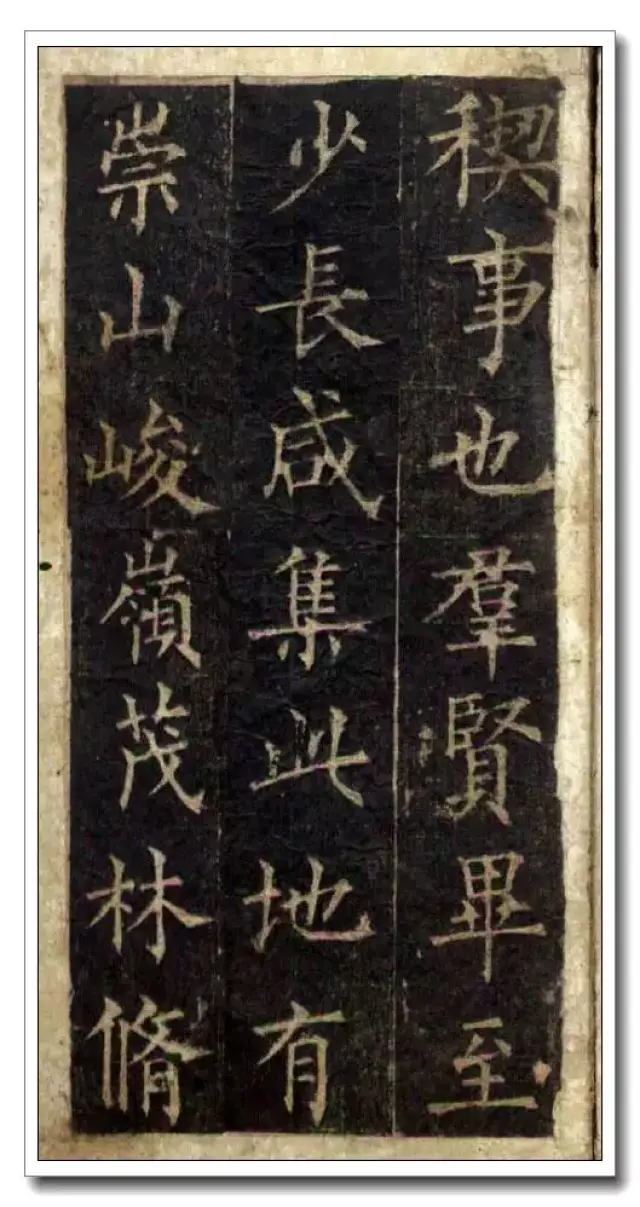 稧事也羣賢畢至
少長咸集此地有
崇山峻嶺茂林脩